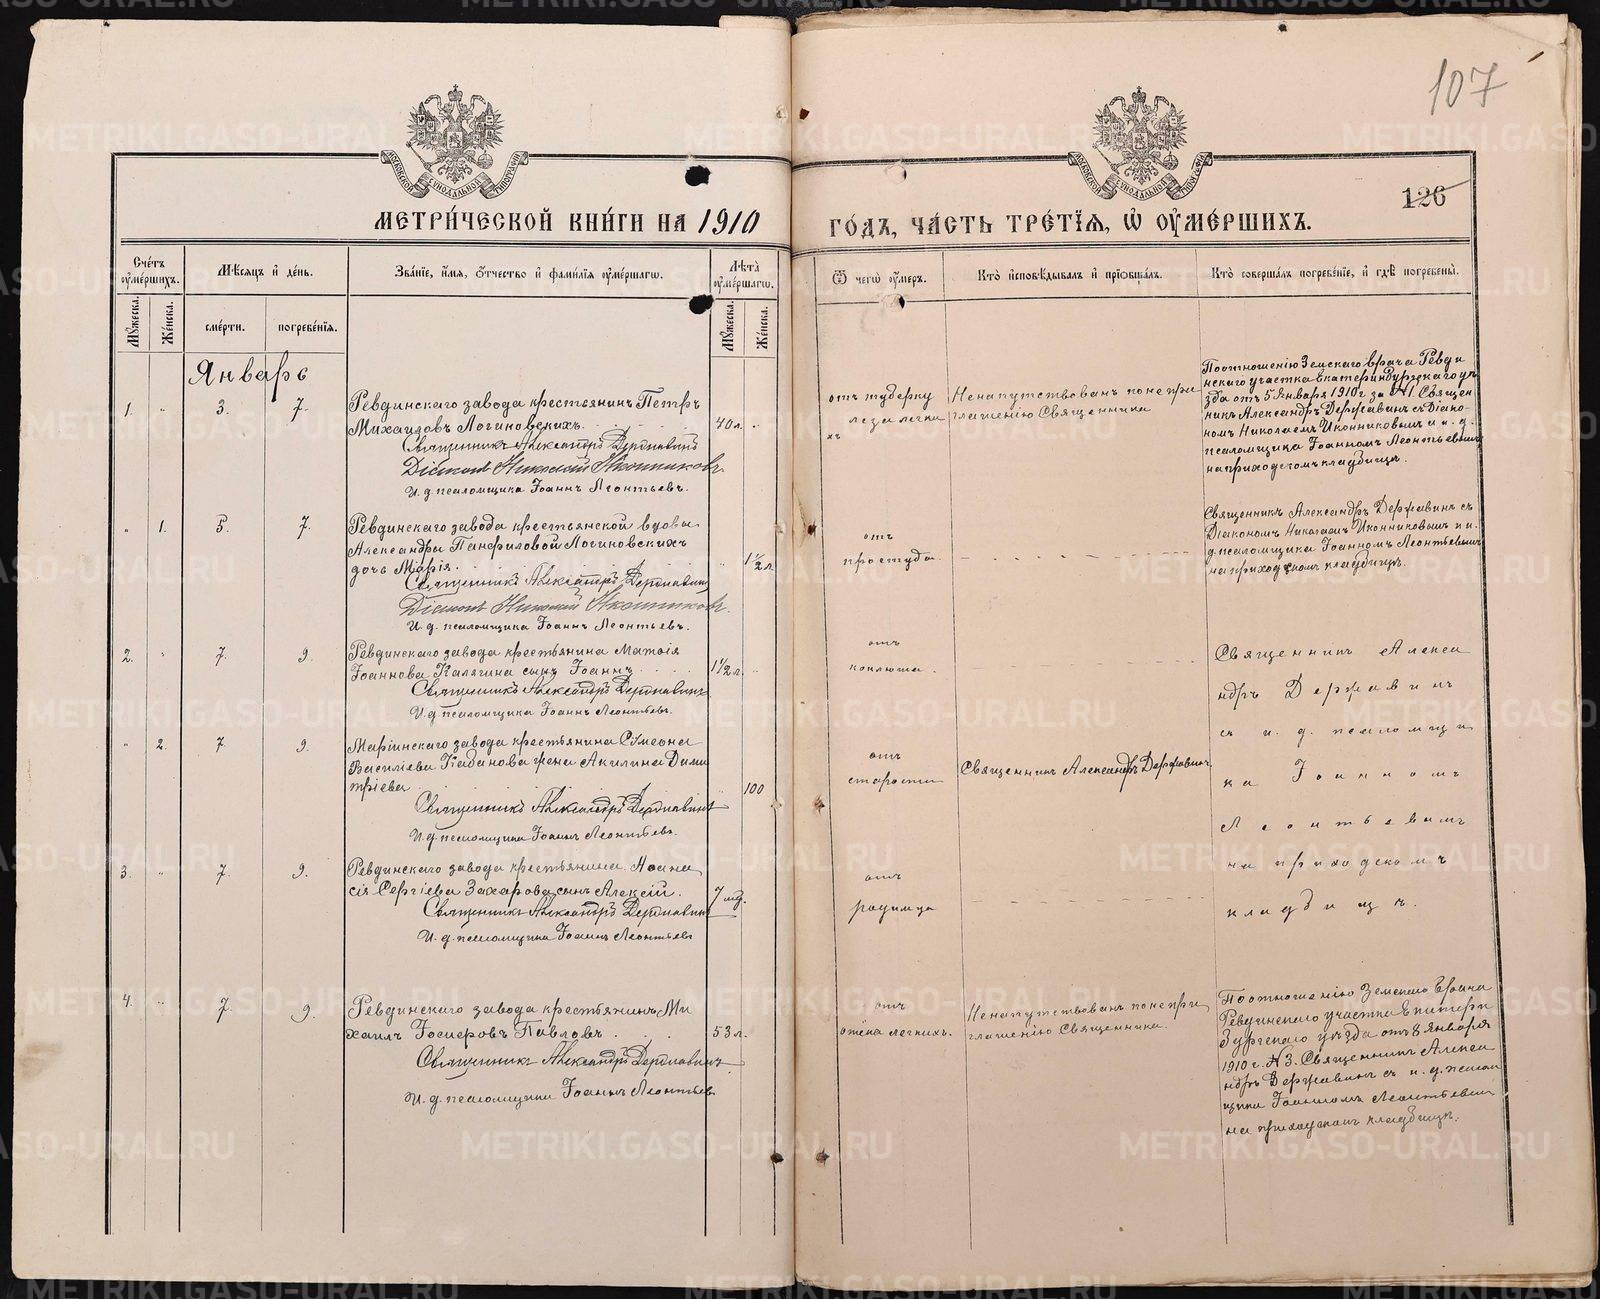 107
126
МОСКОВСКОЙ СѴНОДАЛЬНОЙ ТИПОГРАФІИ
МОСКОВСКОЙ СѴНОДАЛЬНОЙ ТИПОГРАФІИ
МЕТРИ́ЧЕСКОЙ КНИ́ГИ НА 1910
ГО́ДЪ, ЧА́СТЬ ТРЕ́ТІѦ, Ѡ ОУМЕ́РШИХЪ.
Сче́тъ оуме́ршихъ.
Мѣ́сяцъ и де́нь.
Зва́ніе, и́мя, о́тчество и фами́лія оуме́ршагѡ.
Лѣта̀ оуме́ршагѡ.
Ѿ чегѡ̀ оу́меръ.
Кто̀ исповѣ́дывалъ и пріобща́лъ.
Кто̀ соверша́лъ погребе́ніе, и гдѣ̀ погребены̀.
Му́жеска.
Же́нска.
сме́рти.
погребе́нія.
Му́жеска.
Же́нска.
Январь
1. " 3. 7.
Ревдинскаго завода крестьянинъ Петръ
Михаиловъ Логиновскихъ.
40 л.
Священникъ Александръ Державинъ
Діаконъ Николай Иконниковъ
И. д. псаломщика Іоаннъ Леонтьевъ.
отъ туберку
леза легки
хъ
Ненапутствованъ по непри
глашенію Священника
По отношенію Земскаго врача Ревди
нскаго участка Екатеринбургскаго уѣ
зда отъ 5 Января 1910 г за №1. Священ
никъ Александръ Державинъ съ Діако-
номъ Николаемъ Иконниковымъ и и. д.
псаломщика Іоанномъ Леонтьевымъ
на приходскомъ кладбищѣ.
" 1. 5. 7.
Ревдинскаго завода крестьянской вдовы
Александры Панфиловой Логиновскихъ
дочь Марія.
1½ л.
Священникъ Александръ Державинъ
Діаконъ Николай Иконниковъ.
И. д. псаломщика Іоаннъ Леонтьевъ.
отъ
простуды
Священникъ Александръ Державинъ съ
Діакономъ Николаемъ Иконниковымъ и и.
д. псаломщика Іоанномъ Леонтьевымъ
на приходскомъ кладбищѣ.
2. " 7. 9.
Ревдинскаго завода крестьянина Матѳія
Іоаннова Калягина сынъ Іоаннъ
1½ л.
Священникъ Александръ Державинъ
И. д. псаломщика Іоаннъ Леонтьевъ.
отъ
коклюша.
Священникъ Алекса
ндръ Державинъ
съ и. д. псаломщи
ка Іоанномъ
Леонтьевымъ
на приходскомъ
кладбищѣ.
" 2. 7. 9.
Маріинскаго завода крестьянина Симеона
Васильева Кабанова жена Акилина Дими
тріева
100
Священникъ Александръ Державинъ
И. д. псаломщика Іоаннъ Леонтьевъ.
отъ
старости
Священникъ Александръ Державинъ
3. " 7. 9.
Ревдинскаго завода крестьянина Аѳана
сія Сергіева Захарова сынъ Алексій.
7 мд.
Священникъ Александръ Державинъ
И. д. псаломщика Іоаннъ Леонтьевъ
отъ
родимца
4. " 7. 9.
Ревдинскаго завода крестьянинъ Ми
хаилъ Іосифовъ Павловъ
53 л.
Священникъ Александръ Державинъ
И. д. псаломщика Іоаннъ Леонтьевъ
отъ
отека легкихъ.
Ненапутствованъ по непри
глашенію Священника.
По отношенію Земскаго врача
Ревдинскаго участка Екатерин
бургскаго уѣзда отъ 8 января
1910 г. №3. Священникъ Алекса
ндръ Державинъ съ и. д. псалом
щика Іоанномъ Леонтьевымъ
на приходскомъ кладбищѣ.